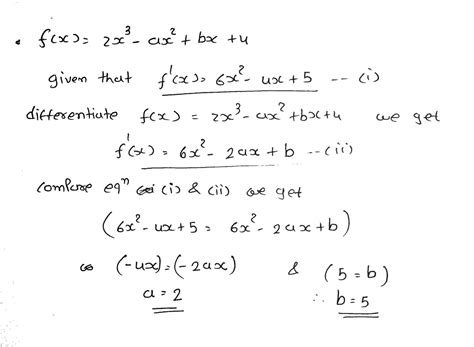 • f(x) = 2x³ - ax² + bx + 4
given that f'(x) = 6x² - 4x + 5 -- (i)
differentiate f(x) = 2x³ - ax² + bx + 4 we get
f'(x) = 6x² - 2ax + b -- (ii)
compare eqⁿ (i) & (ii) we get
(6x² - 4x + 5 = 6x² - 2ax + b)
(-4x) = (-2ax) & (5 = b)
a = 2 ∴ b = 5